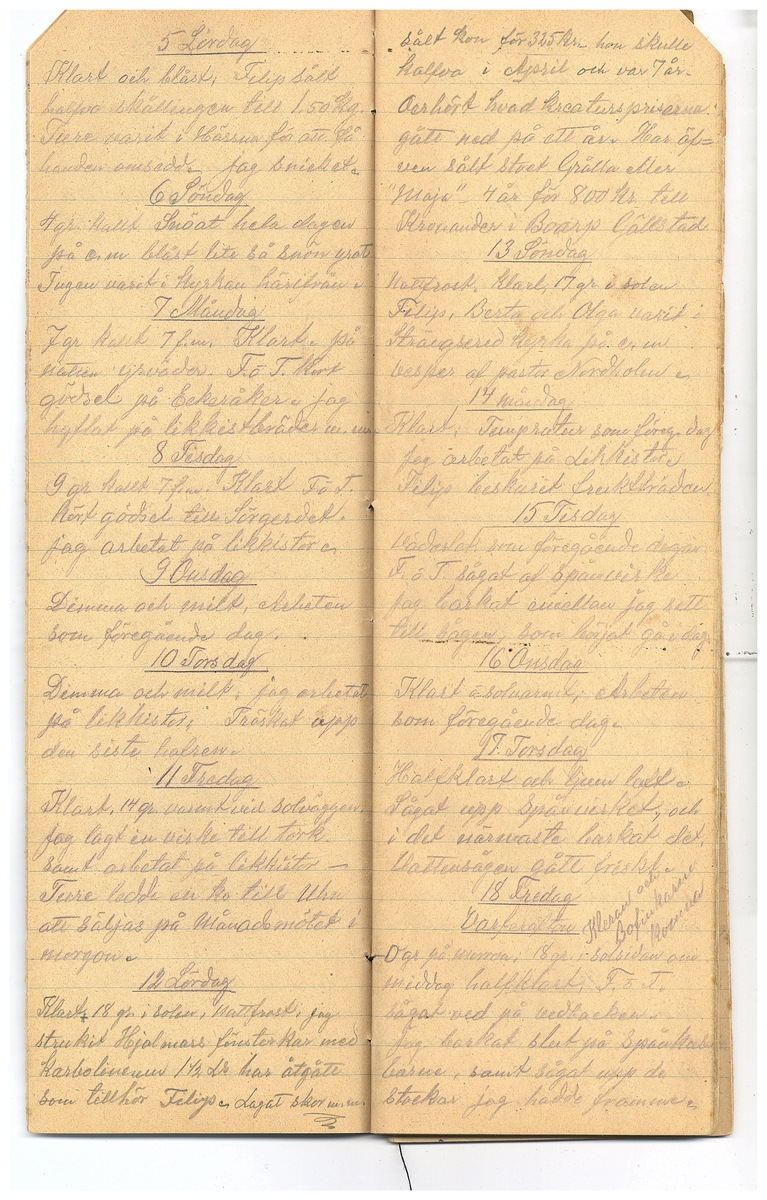 5 Lördag
Klart och blåst, Filip sålt
halfva skållingen till 1.50 kg.
Ture varit i Hässna för att få
handen omsedd. jag snickat.
6 Söndag
4 gr. kallt Snöat hela dagen
på e.m blåst lite så snön yrat
Ingen varit i kyrkan härifrån.
7 Måndag
7 gr kallt 7 f.m. Klart. på
natten yrväder. F. o T. kört
gödsel på Eckeråker. jag
hyflat på likkistbräder m.m
8 Tisdag
9 gr kallt 7 f.m. Klart F o T.
kört gödsel till Sörgerdet.
jag arbetat på likkistor.
9 Onsdag
Dimma och milt, Arbeten
som föregående dag.
10 Torsdag
Dimma och milt. jag arbetat
på likkistor; Tröskat upp
den siste halven.
11 Fredag
Klart, 14 gr. varmt vid solväggen.
jag lagt in virke till tork
samt arbetat på likkistor —
Ture ledde en ko till Uhn
att säljas på Månadsmötet i
morgon.
12 Lördag
Klart, 18 gr. i solen, nattfrost, jag
strukit Hjalmars fönsterkar med
Karbolineum 1½ Lr har åtgått
som tillhör Filip. Lagat skor m.m.
sålt kon för 325 kr. hon skulle
kalfva i April och var 7 år.
Oerhört hvad kreaturspriserna
gått ned på ett år. Har äf=
ven sålt stoet Grålla eller
"Maja" 4 år för 800 Kr. till
Kronander i Boarp Gällstad
13 Söndag
Nattfrost, Klart, 17 gr. i solen
Filip, Berta och Olga varit i
Strängsered kyrka på e. m
vesper af pastor Nordholm.
14 måndag
Klart; Tempratur som föreg. dag
jag arbetat på Likkistor.
Filip beskurit fruktträden
15 Tisdag
Väderlek som föregående dagar
F. o T. sågat af Spånvirke
jag barkat emellan jag sett
till sågen, som börjat gå i dag
16 Onsdag
Klart o solvarmt; Arbeten
som föregående dag.
17 Torsdag
Halfklart och ljum luft.
Sågat upp Spånverket, och
i det närmaste barkat det,
Vattensågen gått friskt.
18 Fredag
Kleran och
Bofinkarne
komna
0 gr på morron; 18 gr. i solsidan om
middag halfklart; F. o T.
sågat ved på vedbacken.
jag barkat slut på Spånkub-
barne, samt sågat upp de
stockar jag hadde framme.